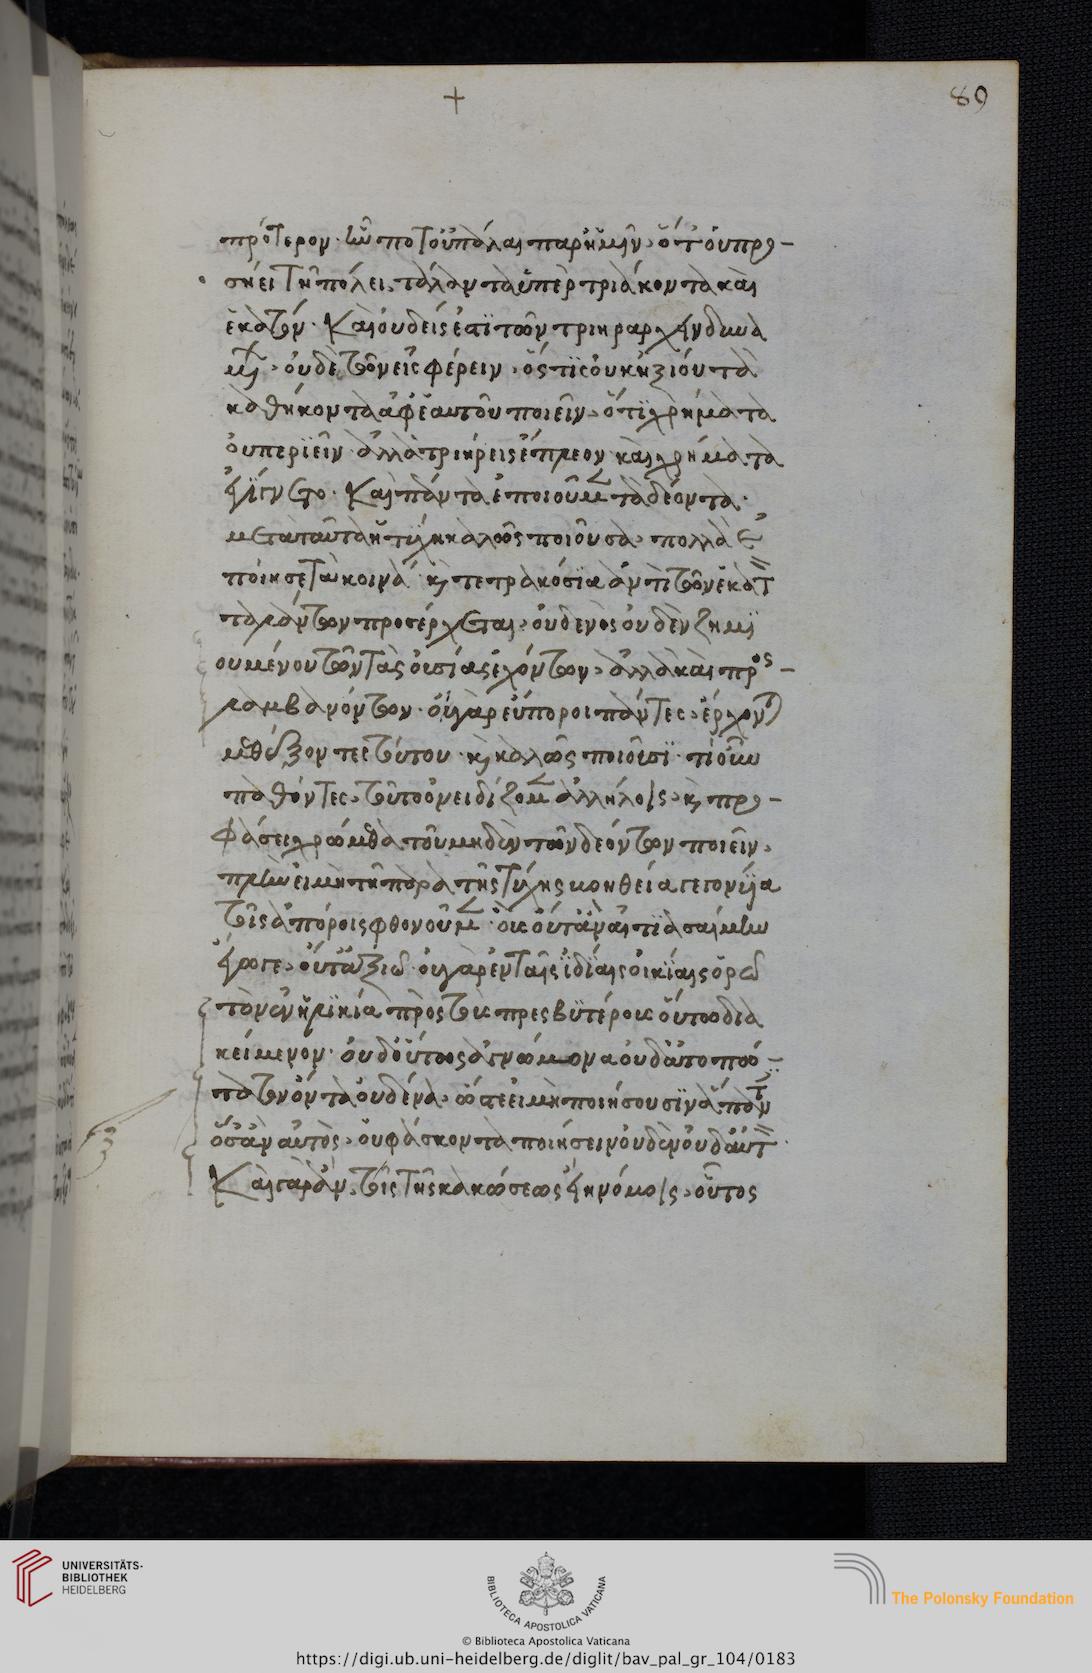 + 89
πρότερον· ἦν ποτ' οὐ πάλαι παρ' ἡμῖν, ὅτ' οὐ προ-
σῄει τῇ πόλει, τάλαντα ὑπὲρ τριάκοντα καὶ
ἑκατόν· καὶ οὐδείς ἐστι τῶν τριηραρχεῖν δυνα
μένων, οὐδὲ τῶν εἰσφέρειν, ὅστις οὐκ ἠξίου τὰ
καθήκοντα ἀφ' ἑαυτοῦ ποιεῖν, ὅτι χρήματα
οὐ περιεῖν· ἀλλὰ τριήρεις ἔπλεον καὶ χρήματα
ἐγίγνετο· καὶ πάντα ἐποιοῦμεν τὰ δέοντα·
μετὰ ταῦτα ἡ τύχη καλῶς ποιοῦσα, πολλὰ ἐ
ποίησε τὰ κοινά· καὶ τετρακόσια ἀντὶ τῶν ἑκατὸν
ταλάντων προσέρχεται, οὐδενὸς οὐδὲν ζημι
ουμένου τῶν τὰς οὐσίας ἐχόντων, ἀλλὰ καὶ προσ-
λαμβανόντων· οἱ γὰρ εὔποροι πάντες, ἔρχονται
μεθέξοντες τούτου· καὶ καλῶς ποιοῦσι· τί οὖν
παθόντες, τοῦτο ὀνειδίζομεν ἀλλήλοις, καὶ προ-
φάσει χρώμεθα τοῦ μηδὲν τῶν δεόντων ποιεῖν,
πλὴν εἰ μὴ τῇ παρὰ τῆς τύχης βοηθείᾳ γεγονυίᾳ
τοῖς ἀπόροις φθονοῦμεν· οὓς οὔτ' ἂν αἰτιασαίμην
ἔγωγε, οὔτ' ἀξιῶ· οὐ γὰρ ἐν ταῖς ἰδίαις οἰκίαις ὁρῶ
τὸν ἐν ἡλικίᾳ πρὸς τοὺς πρεσβυτέρους οὕτω δια
κείμενον· οὐδ' οὕτως ἀγνώμονα οὐδ' ἄτοπον
τῶν ὄντων οὐδένα, ὥστε εἰ μὴ ποιήσουσιν ἅπαντες
ὅσ' ἂν αὐτὸς, οὐ φάσκοντα ποιήσειν οὐδὲν οὐδ' αὐτόν·
καὶ γὰρ ἂν, τοῖς τῆς κακώσεως εἴη νόμοις, οὗτος
UNIVERSITÄTS-
BIBLIOTHEK
HEIDELBERG
BIBLIOTECA APOSTOLICA VATICANA
The Polonsky Foundation
© Biblioteca Apostolica Vaticana
https://digi.ub.uni-heidelberg.de/diglit/bav_pal_gr_104/0183